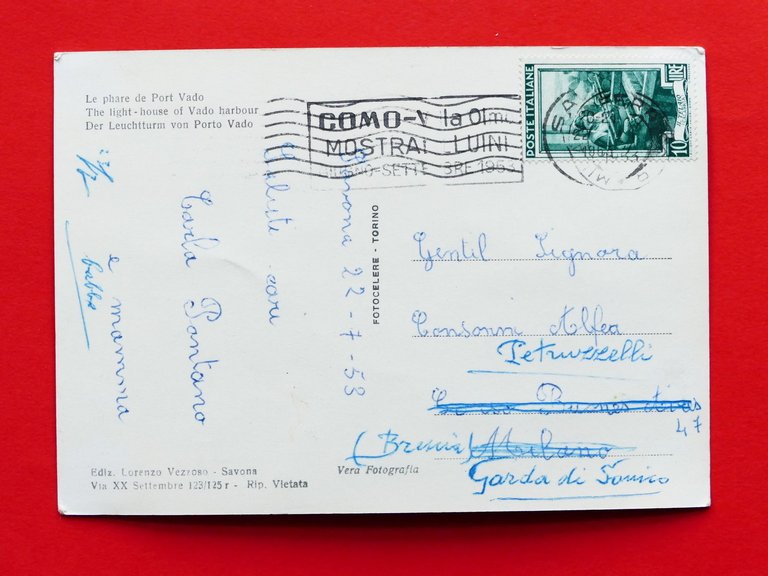 Le phare de Port Vado
The light-house of Vado harbour
Der Leuchtturm von Porto Vado
COMO-V la Olmo
MOSTRA LUINI
SETTEMBRE 1953
POSTE ITALIANE
LIRE
10
Savona 22-7-53
Salute cari
Carla Pantano
e mamma
babbo
FOTOCELERE - TORINO
Gentil Signora
Consonni Alfea
Petruzzelli
Corso Buenos Aires
47
(Brescia) Milano
Garda di Sonico
Ediz. Lorenzo Vezzoso - Savona
Via XX Settembre 123/125 r - Rip. Vietata
Vera Fotografia